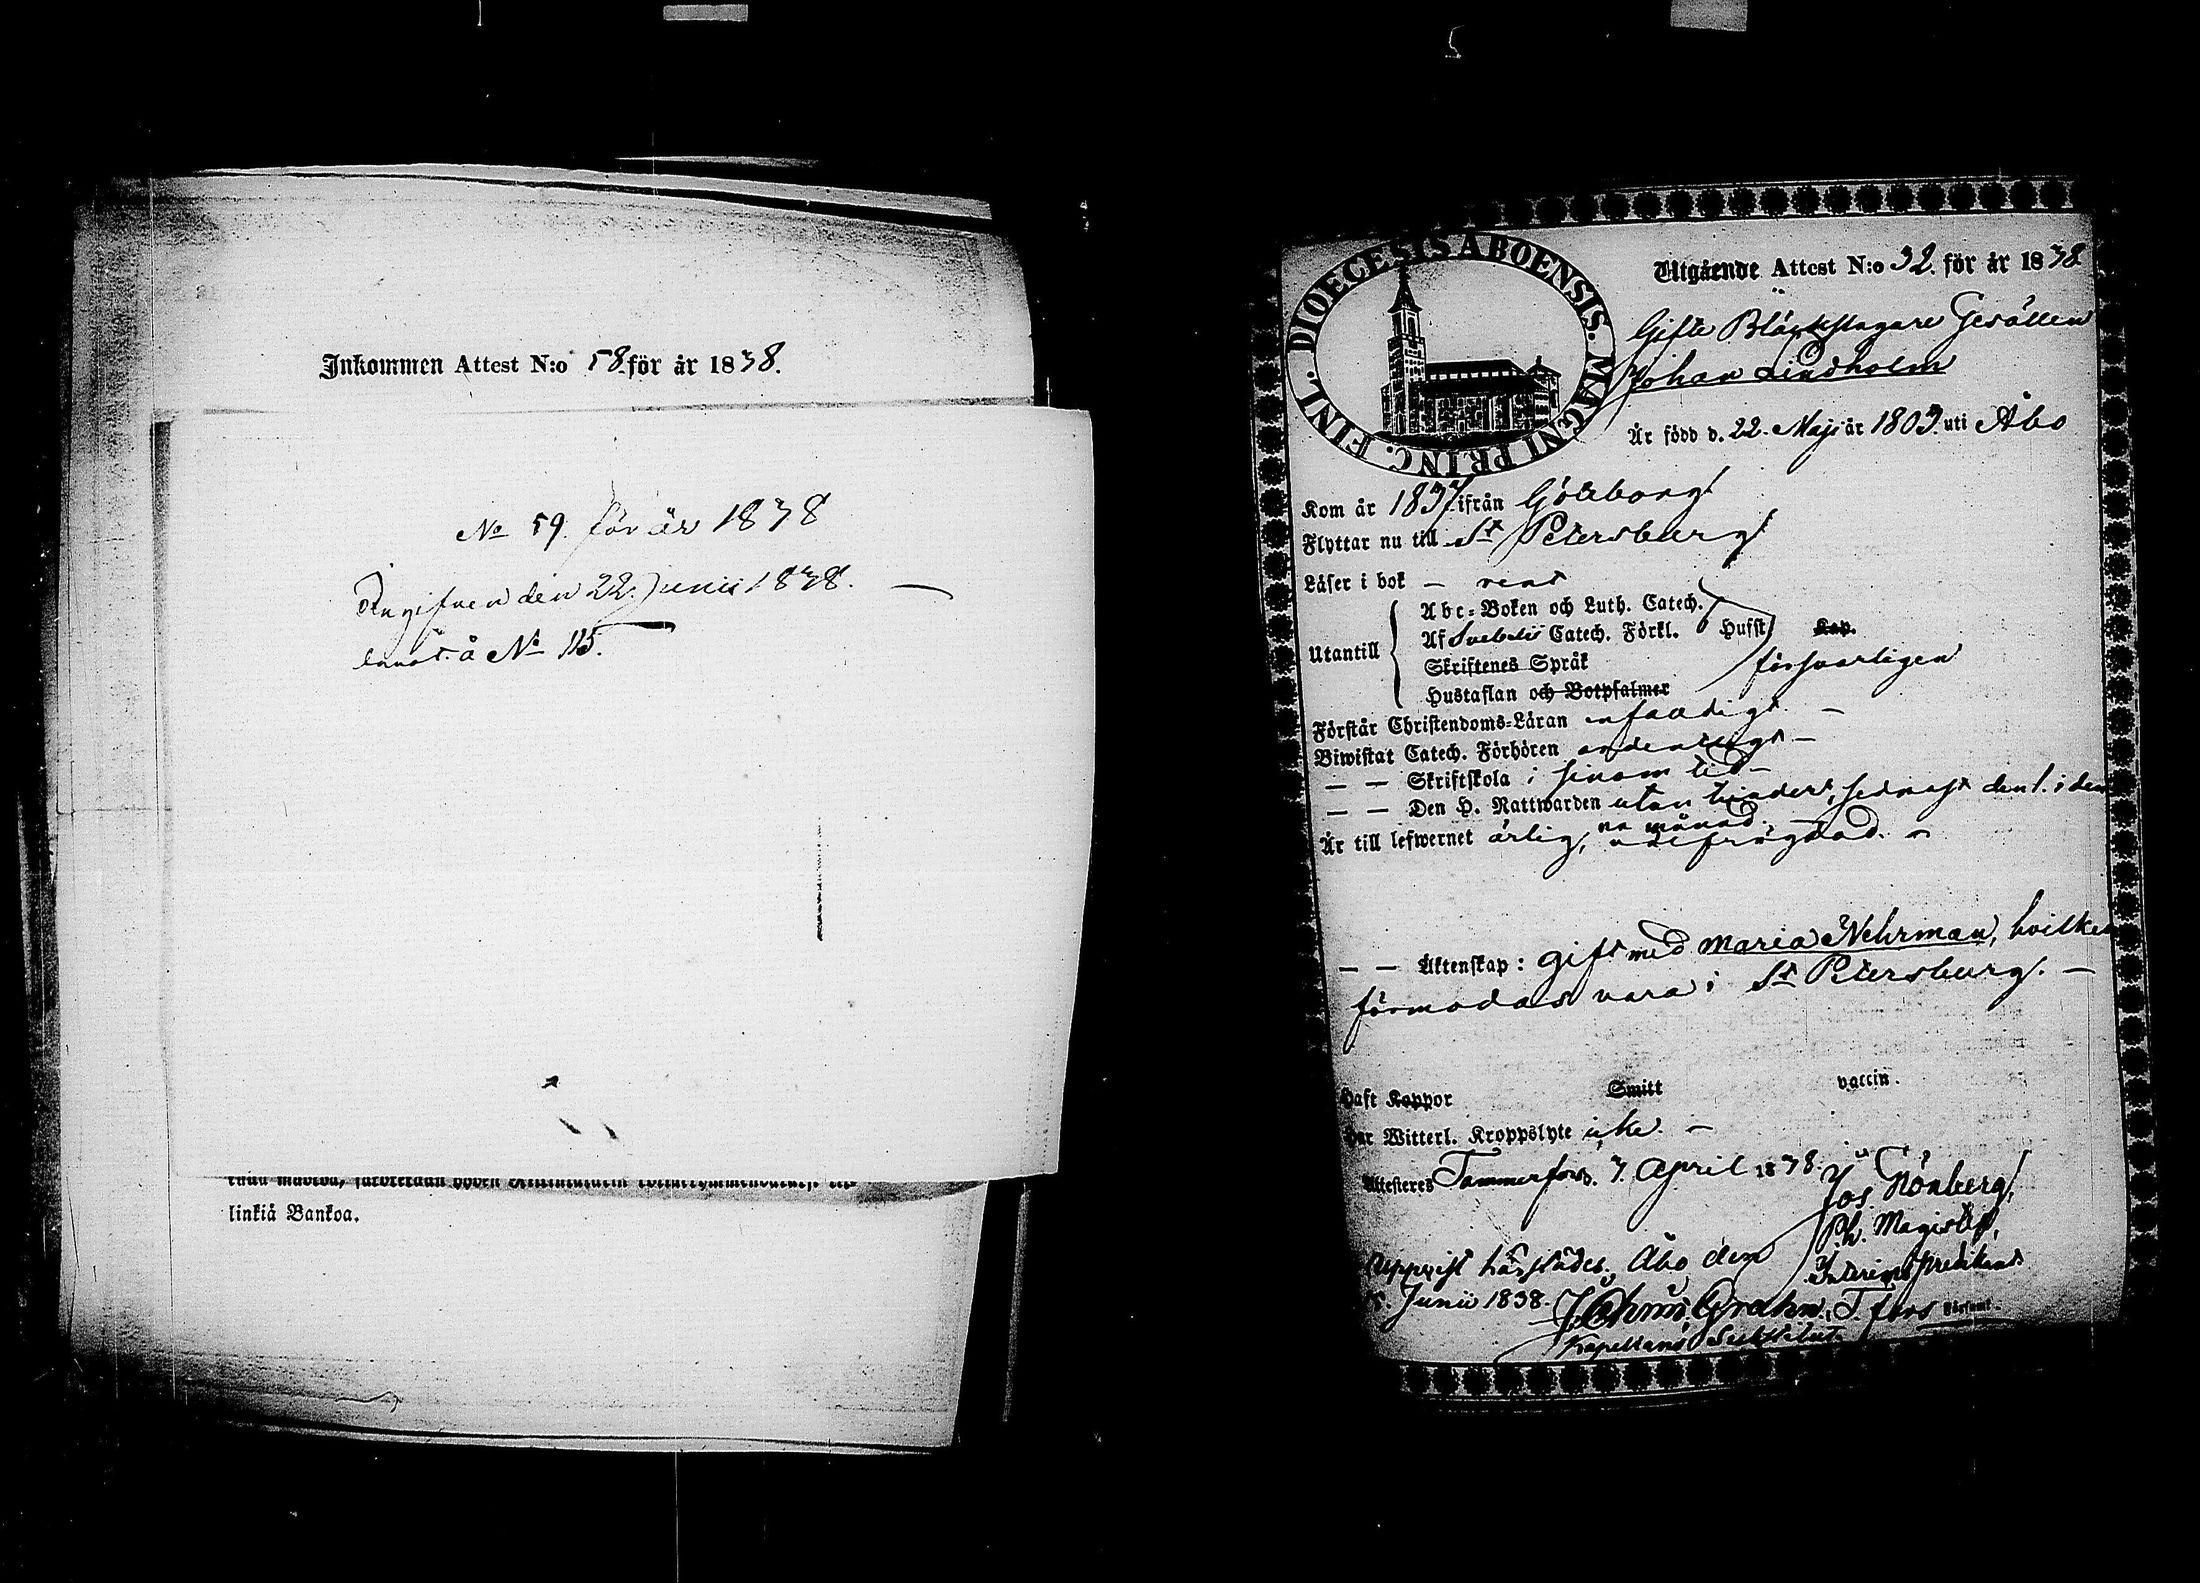 5
Inkommen Attest N:o 58 för år 1838.
No 59. för år 1838
Angifven den 22. Junii 1838. —
å No 115.
linkiä Bankoa.
DIOECESIS ABOENSIS. MAGNI PRINC. FINL.
Utgående Attest N:o 32. för år 1838
Gifte Bläckslagare Gesällen
Johan Lindholm
Är född d. 22. Maji år 1803. uti Åbo
Kom år 1837 ifrån Götheborg
Flyttar nu till St Petersburg
Läser i bok — rent
Utantill
Abc-Boken och Luth. Catech.
Af Svebelii Catech. Förkl. Hufst. Kap.
Skriftenes Språk försvarligen
Hustaflan och Botpsalmer
Förstår Christendoms-Läran enfaldigt —
Biwistat Catech. Förhören ordentligt —
— — Skriftskola i sinom tid —
— — Den H. Nattwarden utan hinder, sednast den 1. i den
na månad. —
Är till lefwernet ärlig, oberyktad. —
— — Äktenskap: gift med Maria Nehrman, hvilken
förmodas vara i St Petersburg. —
Haft Koppor Smitt vaccin.
Har Witterl. Kroppslyte icke. —
Attesteres Tammerfors d. 7. April 1838.
Jos. Grönberg,
Ph. Magister,
Interims predikant
T. fors Församl.
Uppvist härstädes. Åbo den
5. Junii 1838. Grahn,
Kapellans Substitut.